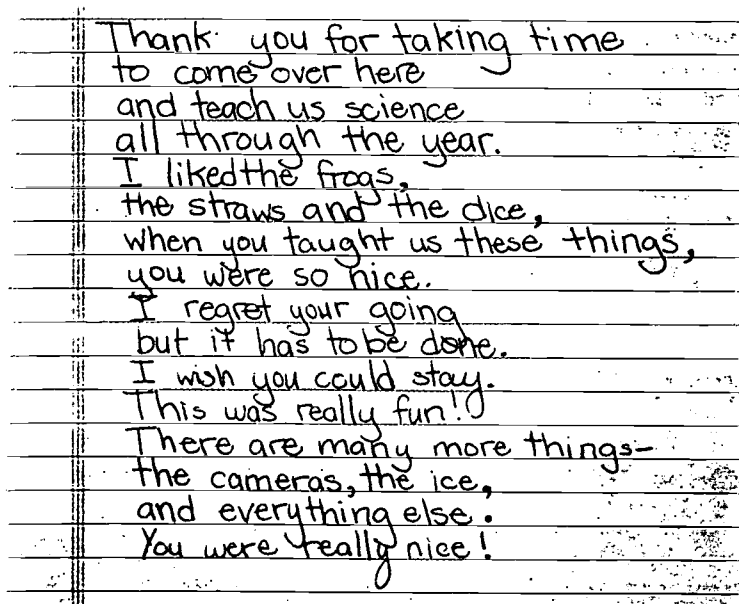 Thank you for taking time
to come over here
and teach us science
all through the year.
I liked the frogs,
the straws and the dice,
when you taught us these things,
you were so nice.
I regret your going
but it has to be done.
I wish you could stay.
This was really fun!
There are many more things-
the cameras, the ice,
and everything else.
You were really nice!